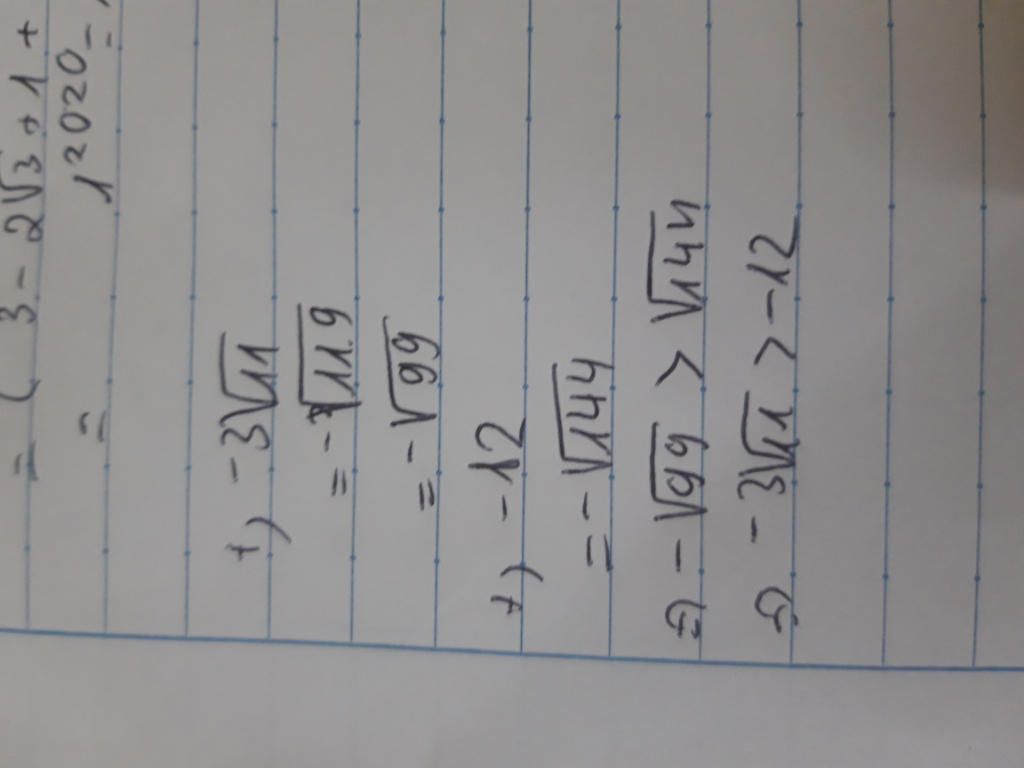 = ( 3 - 2√3 + 1 +
= 1²020 -
+) -3√11
= -√11.9
= -√99
+) -12
= -√144
⇒ -√99 > √144
⇒ -3√11 > -12